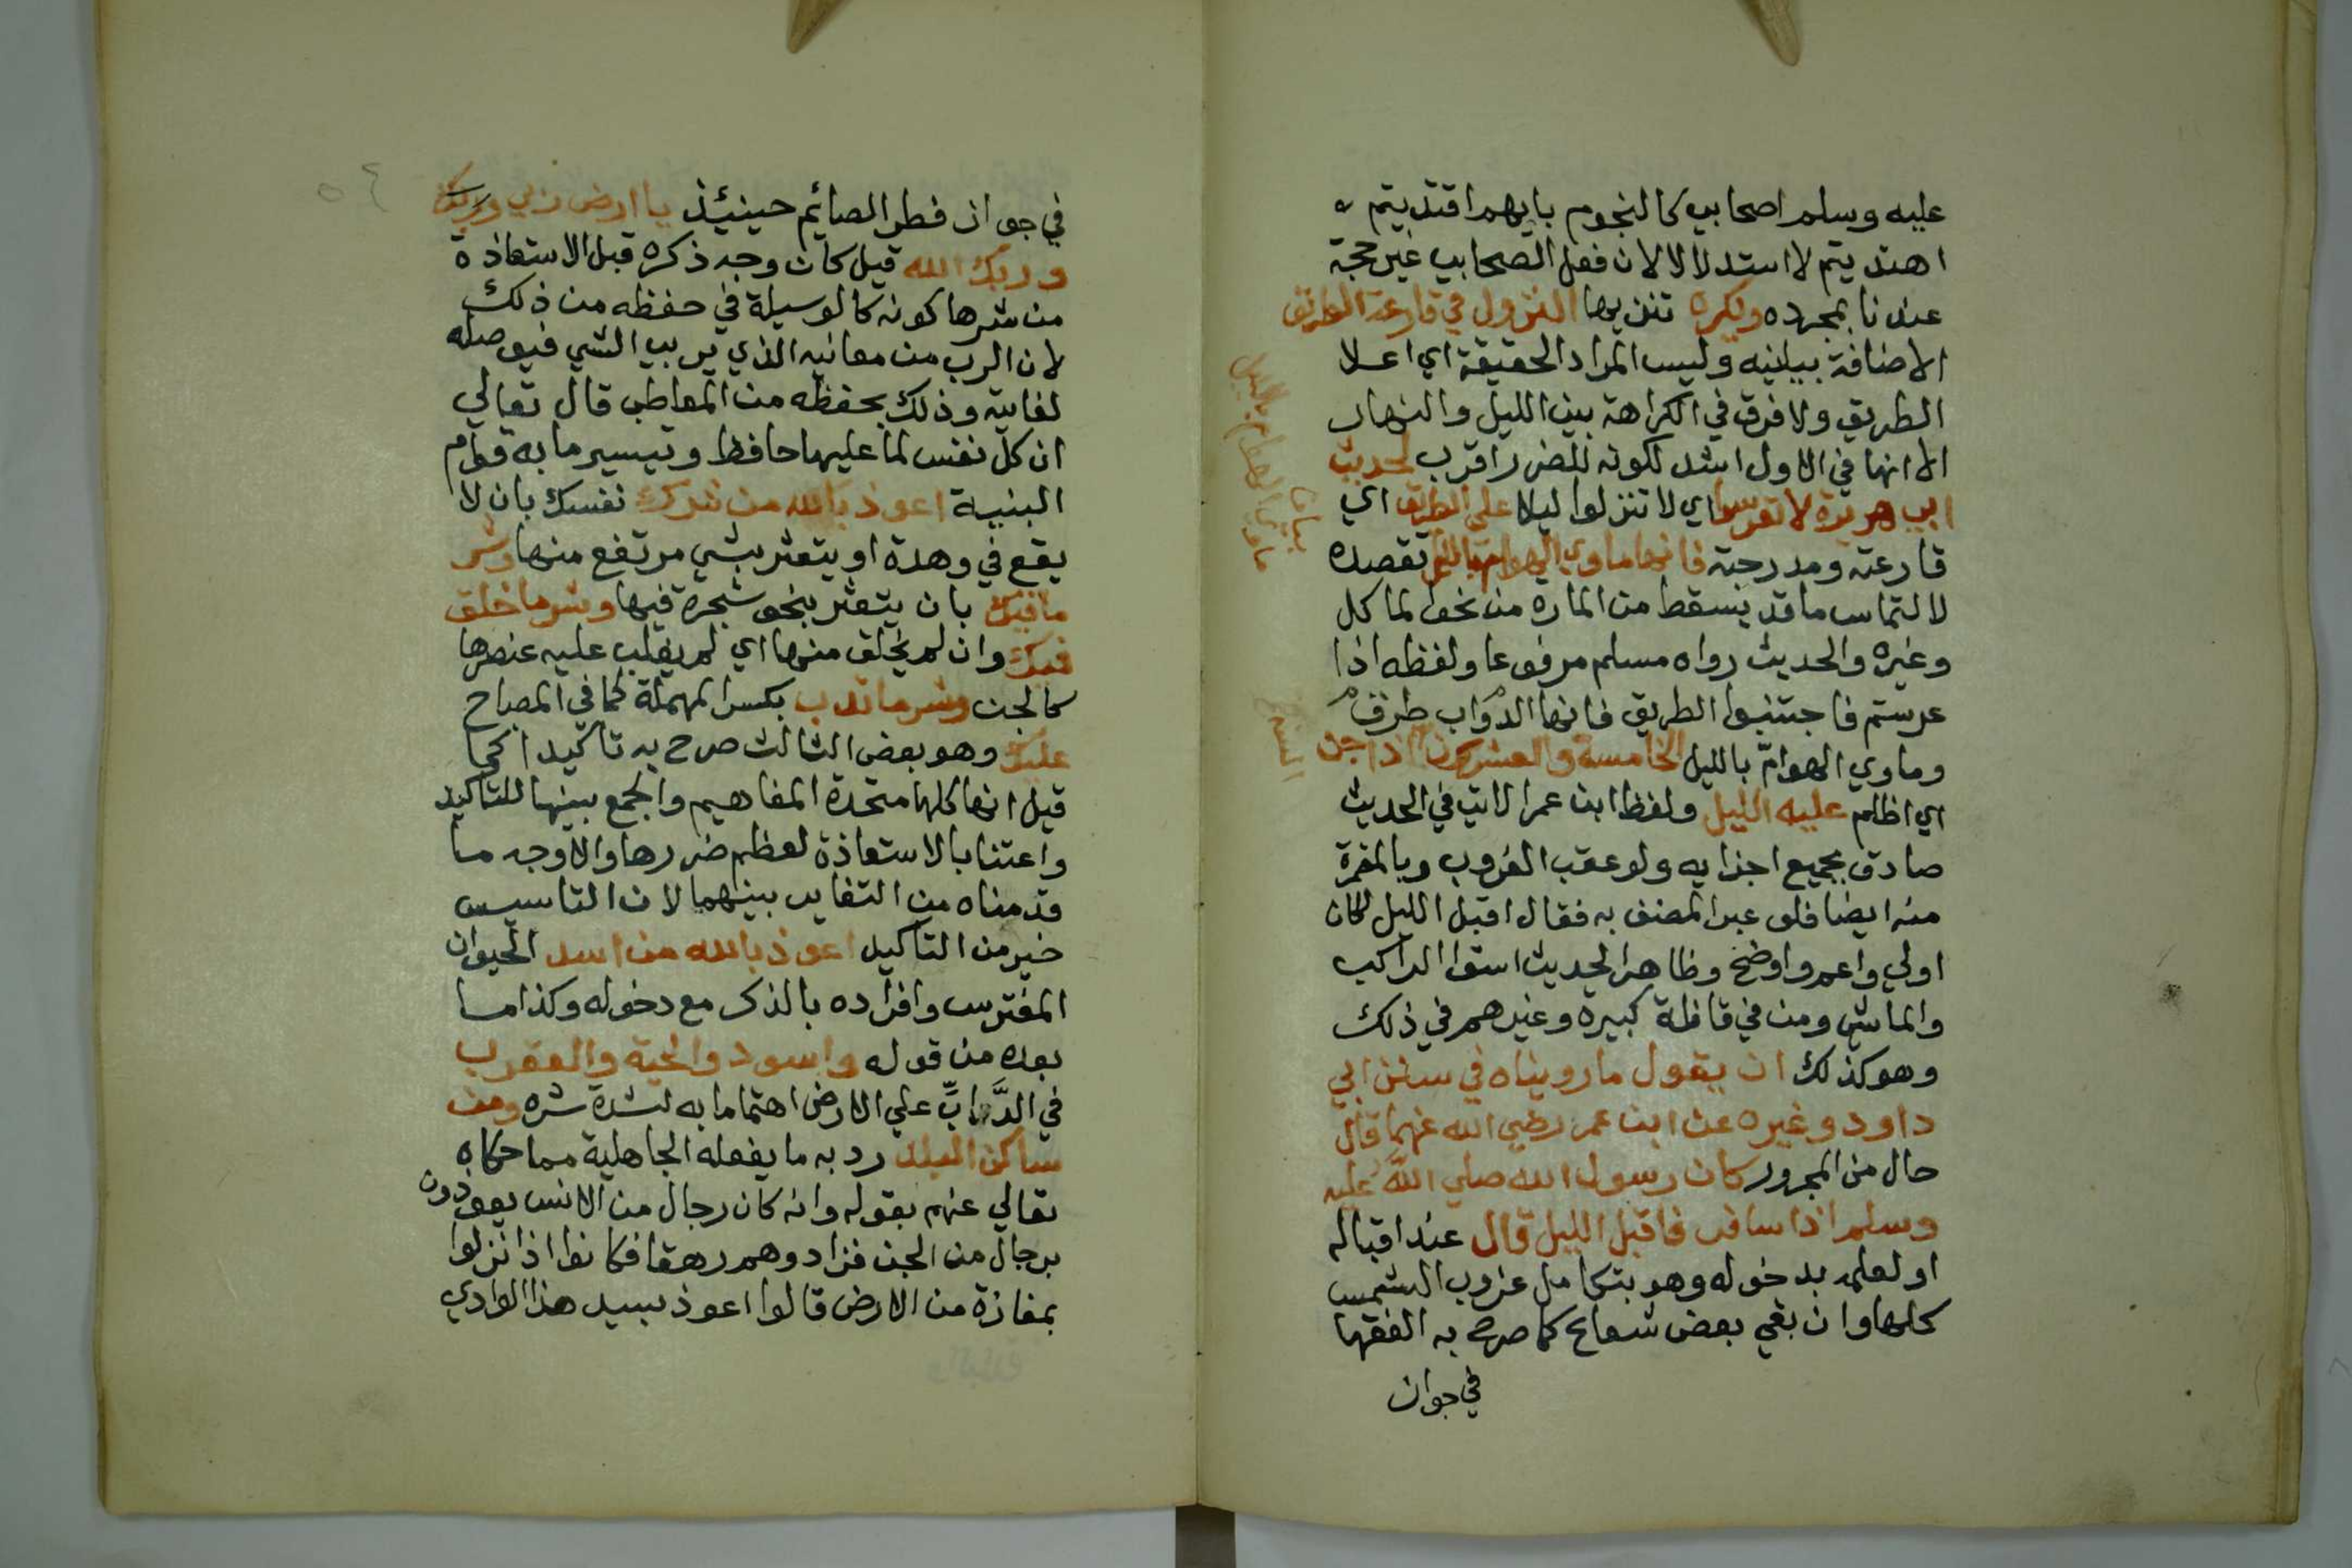 عليه وسلم اصحابي كالنجوم بايهم اقتديتم
اهتديتم لا استدلالا لان فعل الصحابي غير حجة
عندنا بمجرده ويكره تنزيها النزول في قارعة الطريق
الاضافة بيانيه وليس المراد الحقيقة اي اعلا
الطريق ولا فرق في الكراهة بين الليل والنهار
الا انها في الاول اشد لكونه للضرر اقرب لحديث
ابي هريرة لا تعرسوا اي لا تنزلوا ليلا على الطريق اي
قارعته ومدرجته فانها ماوي الهوام بالليل تقصده
لالتماس ما قد يسقط من المارة من نحو الماكل
وغيره والحديث رواه مسلم مرفوعا ولفظه اذا
عرستم فاجتنبوا الطريق فانها الدواب طرق
وماوي الهوامّ بالليل الخامسة والعشرون اذا جن
اي اظلم عليه الليل ولفظ ابن عمر الاتي في الحديث
صادق بجميع اجزايه ولو عقب الغروب وبالمغرة
منه ايضا فلو عبر المصنف به فقال اقبل الليل لكان
اولي واعم واوضح وظاهر الحديث استوا الراكب
والماشي ومن في قافلة كبيرة وغيرهم في ذلك
وهو كذلك ان يقول ما رويناه في سنن ابي
داود وغيره عن ابن عمر رضي الله عنهما قال
حال من المجرور كان رسول الله صلي الله عليه
وسلم اذا سافر فاقبل الليل قال عند اقباله
او لعلمه بدخوله وهو بتكامل غروب الشمس
كلها وان بقي بعض شعاع كما صرح به الفقها
في جواز
في جواز فطر الصائم حينئذ يا ارض ربي وربك
وربك الله قيل كان وجه ذكره قبل الاستعاذة
من شرها كونه كالوسيلة في حفظه من ذلك
لان الرب من معانيه الذي يربي الشي فيوصله
لغايته وذلك بحفظه من المعاطب قال تعالي
ان كل نفس لما عليها حافظ وتيسير ما به قوام
البنية اعوذ بالله من شرك نفسك بان لا
يقع في وهدة او يتعثر بشي مرتفع منها وشر
ما فيك بان يتعثر بنحو شجرة فيها وشر ما خلق
فيك وان لم يخلق منها اي لم يغلب عليه عنصرها
كالجن وشر ما يدب بكسر المهملة كما في المصباح
عليك وهو بعض الثالث صرح به تاكيدا كما
قيل انها كلها متحدة المفاهيم والجمع بينها للتاكيد
واعتنا بالاستعاذة لعظم ضررها والاوجه ما
قدمناه من التغاير بينهما لان التاسيس
خير من التاكيد اعوذ بالله من اسد الحيوان
المفترس وافراده بالذكر مع دخوله وكذا ما
بعده من قوله واسود والحية والعقرب
في الدَّوابِّ علي الارض اهتماما به لشدة شره ومن
ساكن البلد رد به ما يفعله الجاهلية مما حكاه
تعالي عنهم بقوله وانه كان رجال من الانس يعوذون
برجال من الجن فزادوهم رهقا فكانوا اذا نزلوا
بمفازة من الارض قالوا اعوذ بسيد هذا الوادي